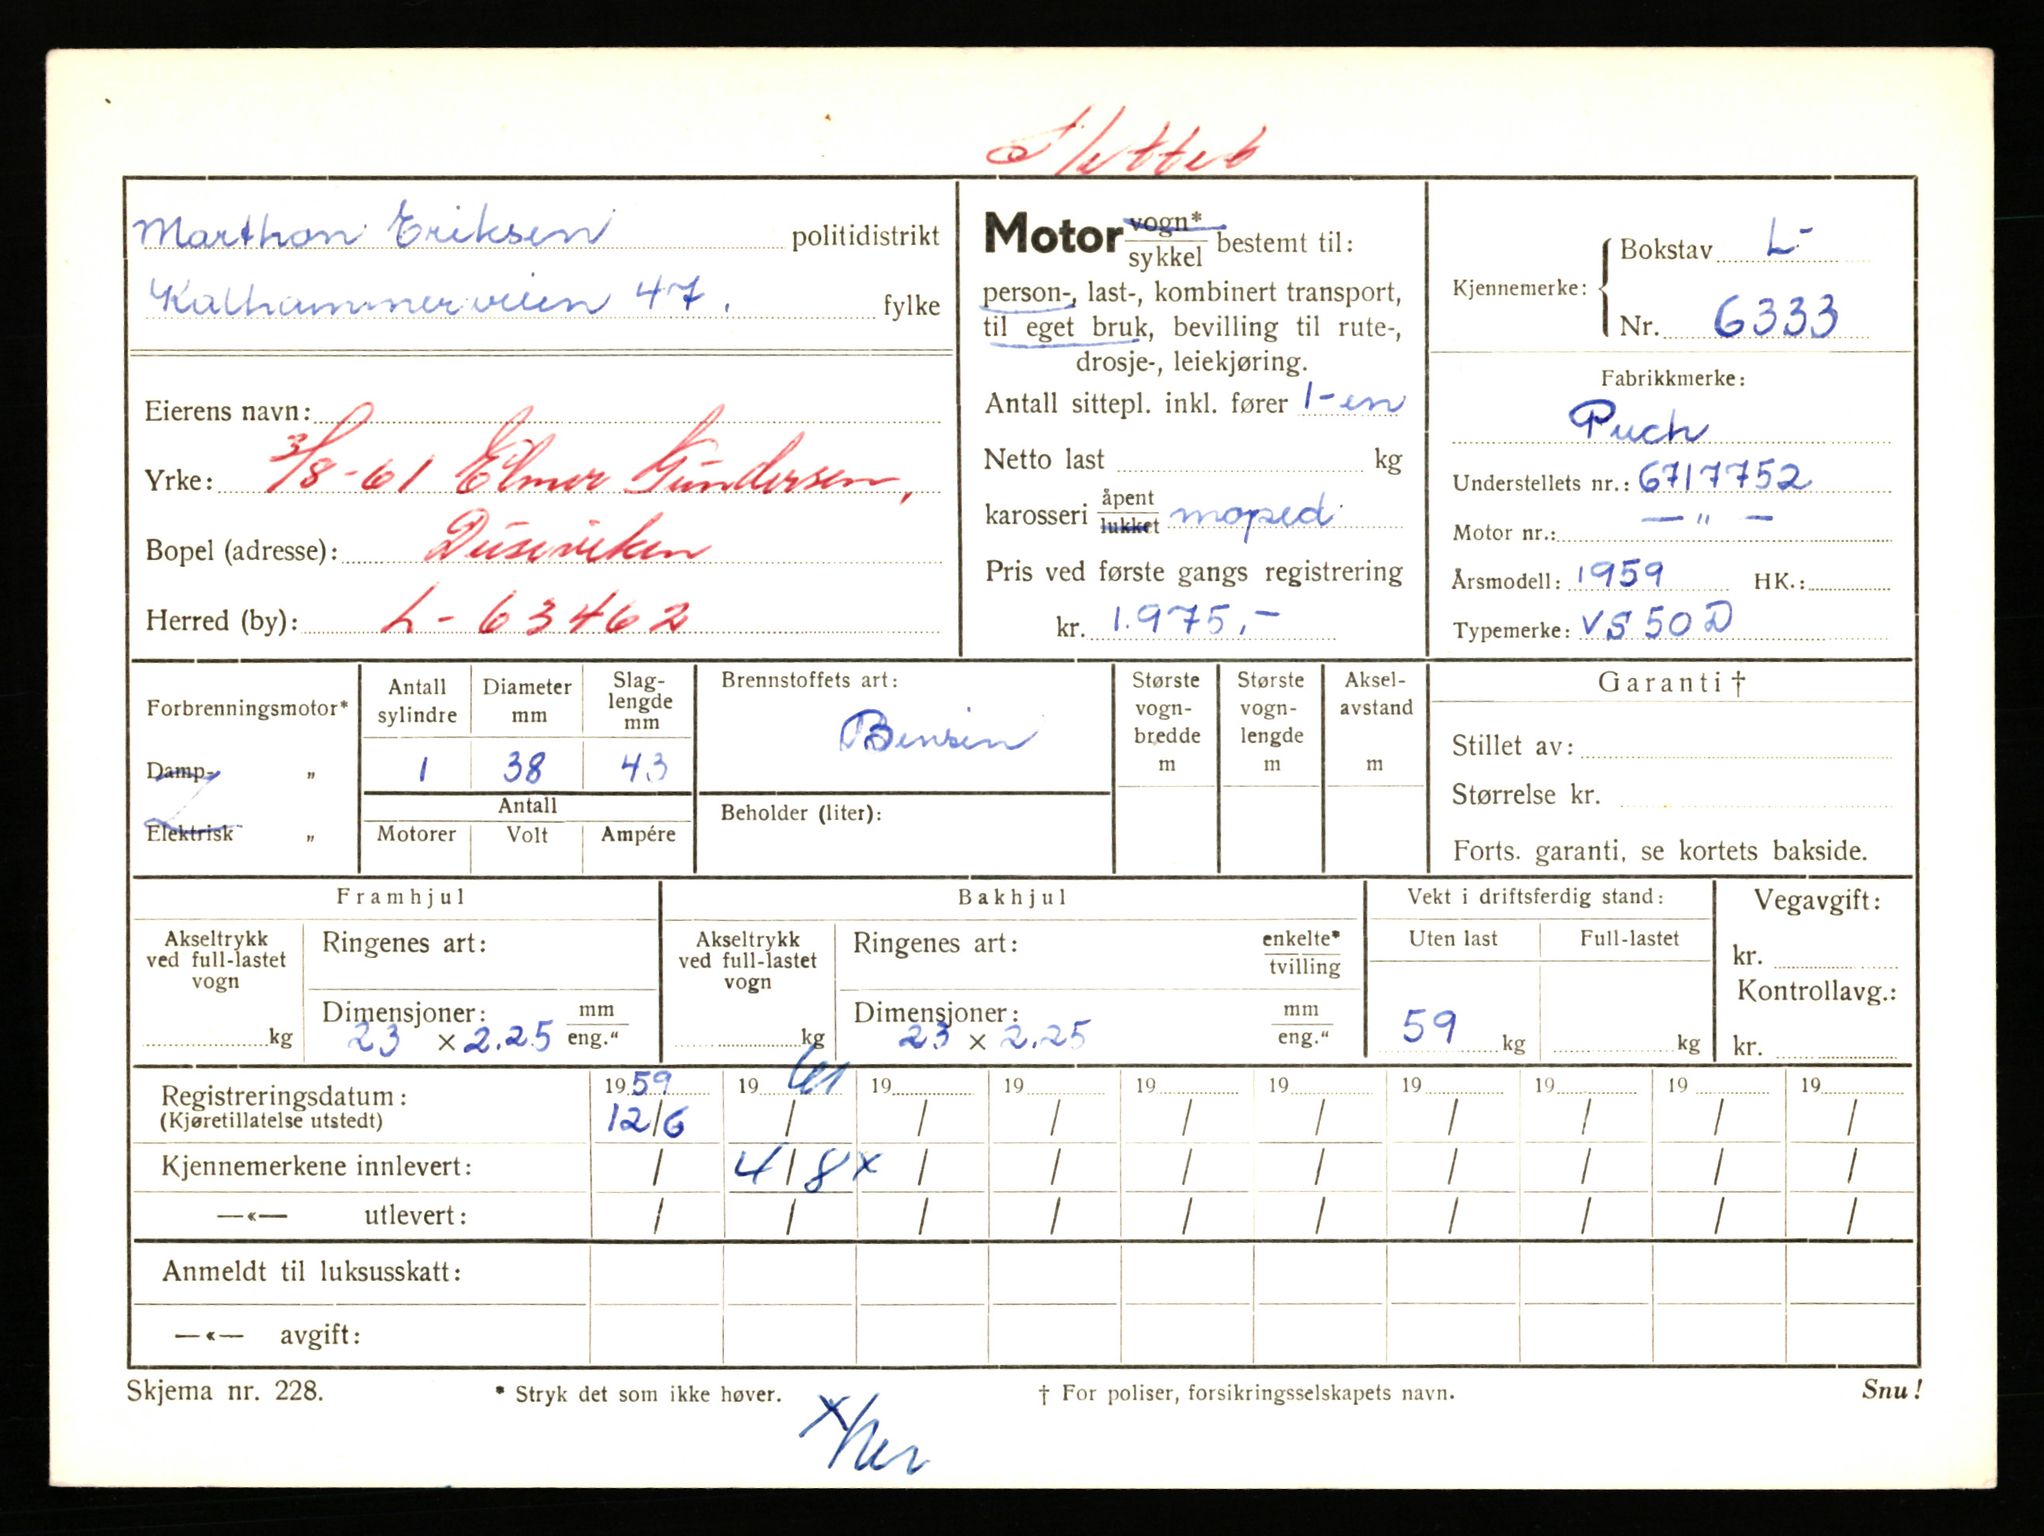 Slettet
Marthon Eriksen politidistrikt
Kalhammerveien 47. fylke
Eierens navn:
Yrke: 3/8-61 Elmer Gundersen,
Bopel (adresse): Duseviken
Herred (by): L-63462
Motor vogn* / sykkel bestemt til:
person-, last-, kombinert transport,
til eget bruk, bevilling til rute-,
drosje-, leiekjøring.
Antall sittepl. inkl. fører 1-en
Netto last kg
karosseri åpent / lukket moped
Pris ved første gangs registrering
kr. 1.975,-
Kjennemerke: Bokstav L-
Nr. 6333
Fabrikkmerke:
Puch
Understellets nr.: 6717752
Motor nr.: — " —
Årsmodell: 1959 HK.:
Typemerke: VS 50 D
Forbrenningsmotor*
Damp- "
Elektrisk "
Antall sylindre Diameter mm Slag-lengde mm
1 38 43
Antall
Motorer Volt Ampére
Brennstoffets art:
Bensin
Beholder (liter):
Største vogn-bredde m
Største vogn-lengde m
Aksel-avstand m
Garanti †
Stillet av:
Størrelse kr.
Forts. garanti, se kortets bakside.
Framhjul
Akseltrykk ved full-lastet vogn kg
Ringenes art:
Dimensjoner: mm / eng."
23 x 2.25
Bakhjul
Akseltrykk ved full-lastet vogn kg
Ringenes art: enkelte* / tvilling
Dimensjoner: mm / eng."
23 x 2.25
Vekt i driftsferdig stand:
Uten last Full-lastet
59 kg kg
Vegavgift:
kr.
Kontrollavg.:
kr.
Registreringsdatum: 1959 1961 19 19 19 19 19 19 19 19
(Kjøretillatelse utstedt) 12/6 / / / / / / / / /
Kjennemerkene innlevert: / 4/8x / / / / / / / /
—«— utlevert: / / / / / / / / / /
Anmeldt til luksusskatt:
—«— avgift:
Skjema nr. 228. * Stryk det som ikke høver. † For poliser, forsikringsselskapets navn. Snu!
x/her